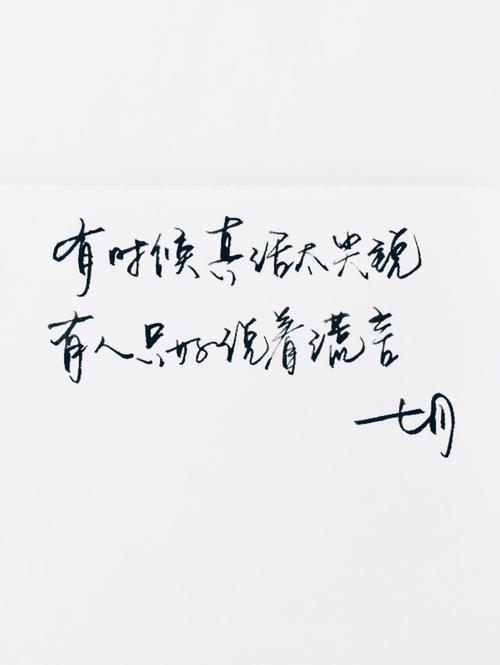 有时候真话太尖锐
有人只好说着谎言
七月